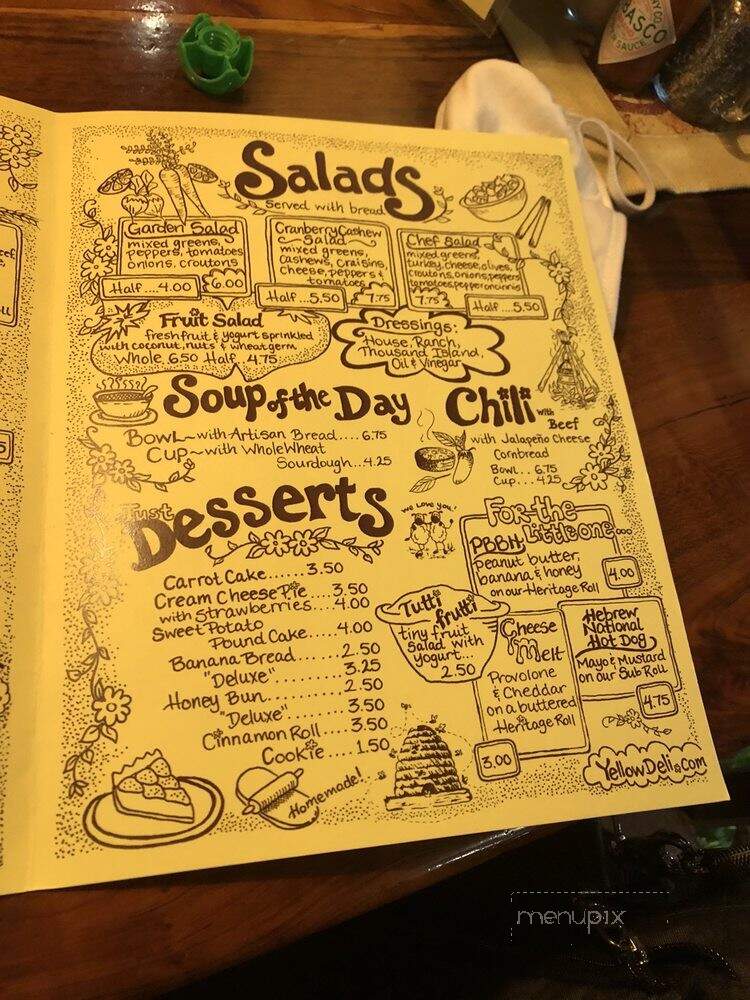 BASCO
SAUCE
Salads
served with bread
Garden Salad
mixed greens,
peppers, tomatoes
onions, croutons
Half...4.00
6.00
Cranberry Cashew
Salad
mixed greens,
cashews, craisins,
cheese, peppers &
tomatoes
Half...5.50
7.75
Chef Salad
mixed greens,
turkey, cheese, olives,
croutons, onions, peppers
tomatoes, pepperoncinnis
7.75
Half...5.50
Fruit Salad
fresh fruit & yogurt sprinkled
with coconut, nuts & wheat germ
Whole. 6.50 Half. 4.75
Dressings:
House, Ranch,
Thousand Island,
Oil & Vinegar
Soup of the Day
BOWL~with Artisan Bread....6.75
CUP~with Whole Wheat
Sourdough...4.25
Chili with Beef
with Jalapeño Cheese
Cornbread
Bowl..6.75
Cup...4.25
Just
Desserts
Carrot Cake......3.50
Cream Cheese Pie...3.50
with strawberries...4.00
Sweet Potato
Pound Cake.....4.00
Banana Bread....2.50
"Deluxe".......3.25
Honey Bun.......2.50
"Deluxe".......3.50
Cinnamon Roll....3.50
Cookie....1.50
Homemade!
we love you!
For the
Little one...
PBBH
peanut butter,
banana & honey
on our Heritage Roll
4.00
Tutti frutti
tiny fruit
salad with
yogurt...
2.50
Cheese
Melt
Provolone
& Cheddar
on a buttered
Heritage Roll
3.00
Hebrew
National
Hot Dog
Mayo & Mustard
on our Sub Roll
4.75
YellowDeli.com
menupix